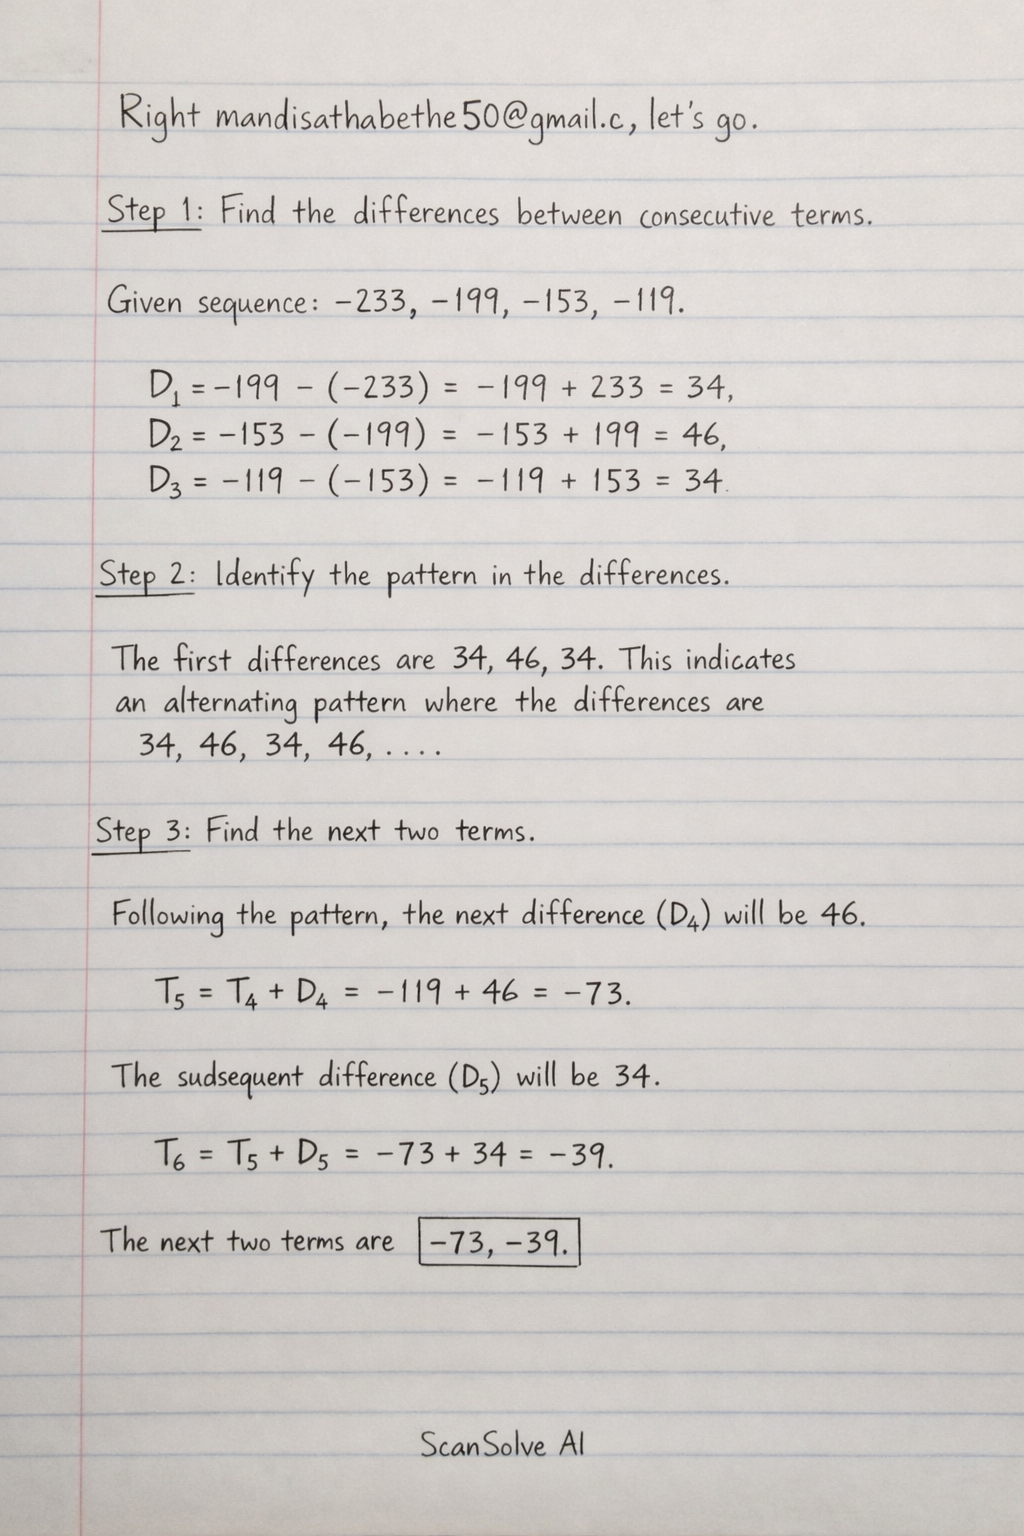 Right mandisathabethe50@gmail.c, let's go.
Step 1: Find the differences between consecutive terms.
Given sequence: −233, −199, −153, −119.
D₁ = −199 − (−233) = −199 + 233 = 34,
D₂ = −153 − (−199) = −153 + 199 = 46,
D₃ = −119 − (−153) = −119 + 153 = 34.
Step 2: Identify the pattern in the differences.
The first differences are 34, 46, 34. This indicates
an alternating pattern where the differences are
34, 46, 34, 46, ....
Step 3: Find the next two terms.
Following the pattern, the next difference (D₄) will be 46.
T₅ = T₄ + D₄ = −119 + 46 = −73.
The sudsequent difference (D₅) will be 34.
T₆ = T₅ + D₅ = −73 + 34 = −39.
The next two terms are −73, −39.
ScanSolve AI